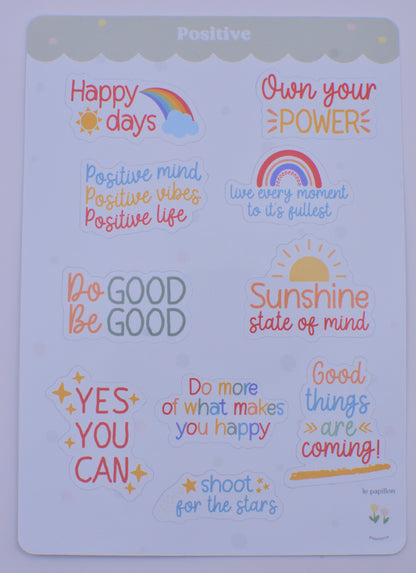 Positive
Happy
days
Own your
POWER
Positive mind
Positive vibes
Positive life
live every moment
to it's fullest
Do GOOD
Be GOOD
Sunshine
state of mind
YES
YOU
CAN
Do more
of what makes
you happy
Good
things
are
coming!
shoot
for the stars
le papillon